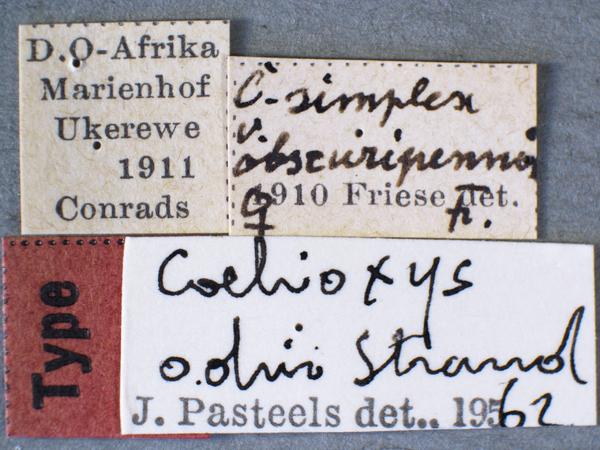 D.O-Afrika
Marienhof
Ukerewe
1911
Conrads
C. simplex
v.
obscuripennis
1910 Friese det.
♀ F.
Type
Coelioxys
odin Strand
J. Pasteels det.. 1962